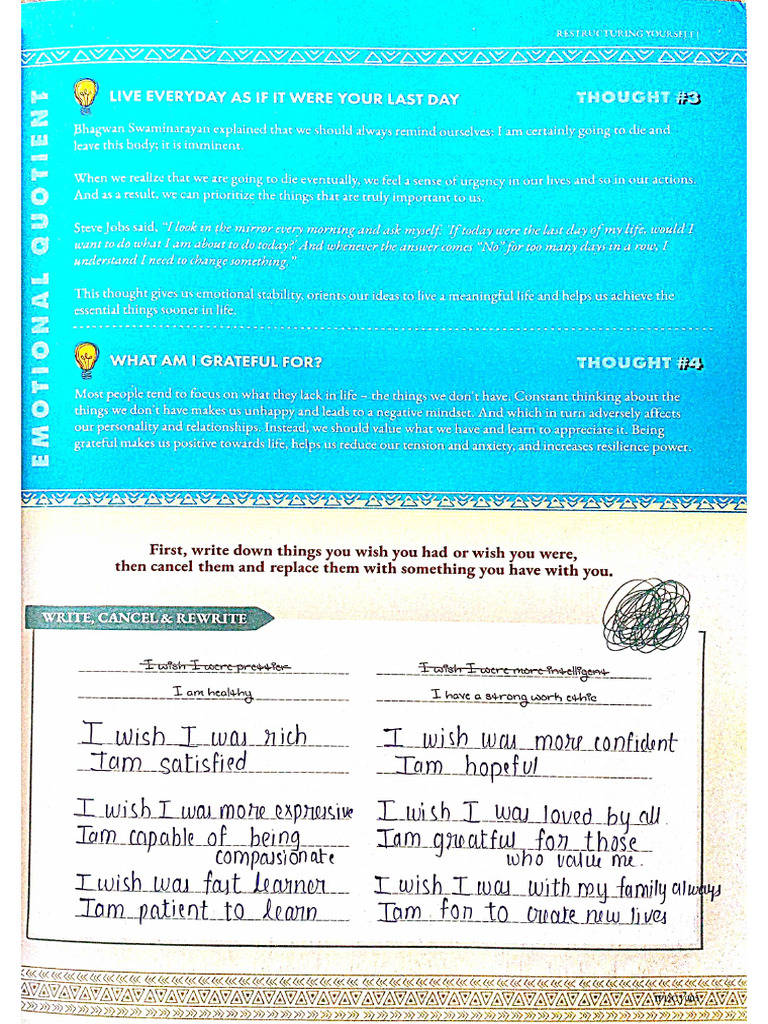 RESTRUCTURING YOURSELF |
EMOTIONAL QUOTIENT
LIVE EVERYDAY AS IF IT WERE YOUR LAST DAY
THOUGHT #3
Bhagwan Swaminarayan explained that we should always remind ourselves: I am certainly going to die and
leave this body; it is imminent.
When we realize that we are going to die eventually, we feel a sense of urgency in our lives and so in our actions.
And as a result, we can prioritize the things that are truly important to us.
Steve Jobs said, “I look in the mirror every morning and ask myself: ‘If today were the last day of my life, would I
want to do what I am about to do today?’ And whenever the answer comes “No” for too many days in a row, I
understand I need to change something.”
This thought gives us emotional stability, orients our ideas to live a meaningful life and helps us achieve the
essential things sooner in life.
WHAT AM I GRATEFUL FOR?
THOUGHT #4
Most people tend to focus on what they lack in life – the things we don't have. Constant thinking about the
things we don't have makes us unhappy and leads to a negative mindset. And which in turn adversely affects
our personality and relationships. Instead, we should value what we have and learn to appreciate it. Being
grateful makes us positive towards life, helps us reduce our tension and anxiety, and increases resilience power.
First, write down things you wish you had or wish you were,
then cancel them and replace them with something you have with you.
WRITE, CANCEL & REWRITE
I wish I were prettier
I am healthy
I wish I was rich
I am satisfied
I wish I was more expressive
I am capable of being
compassionate
I wish was fast learner
I am patient to learn
I wish I were more intelligent
I have a strong work ethic
I wish was more confident
I am hopeful
I wish I was loved by all
I am greatful for those
who value me.
I wish I was with my family always
I am for to create new lives